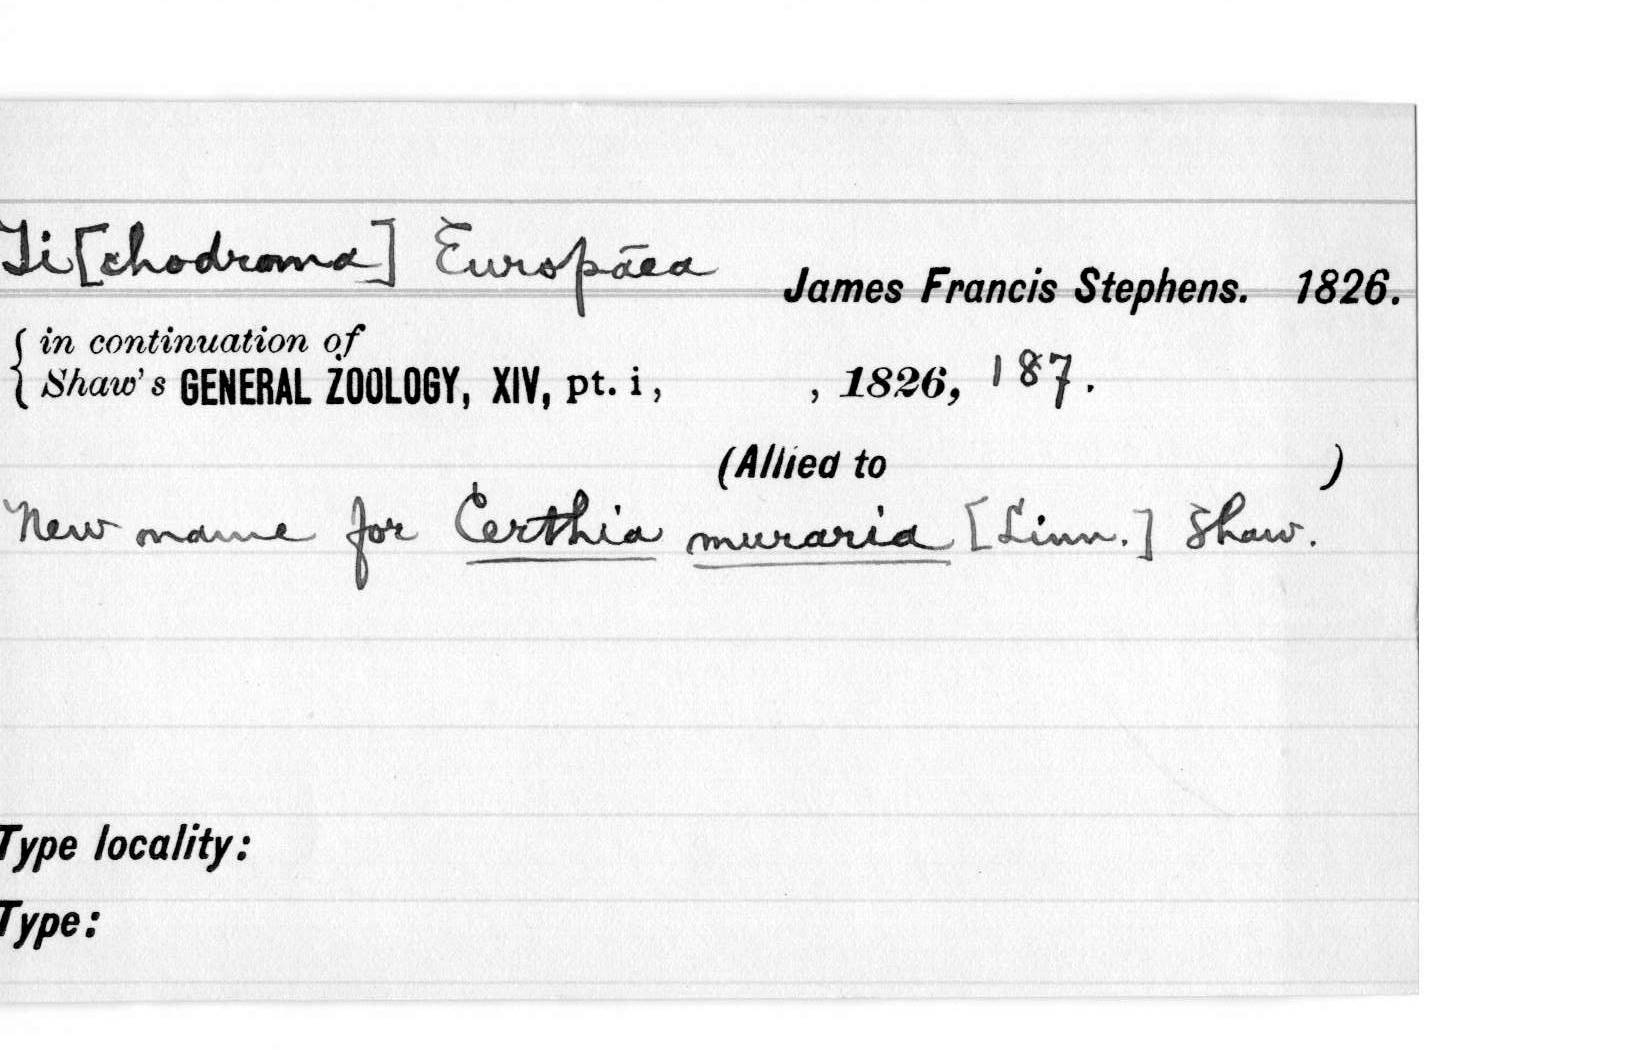 Ti[chodroma] Europāea James Francis Stephens. 1826.
in continuation of
Shaw's GENERAL ZOOLOGY, XIV, pt. i, , 1826, 187.
(Allied to )
New name for Certhia muraria [Linn.] Shaw.
Type locality:
Type: